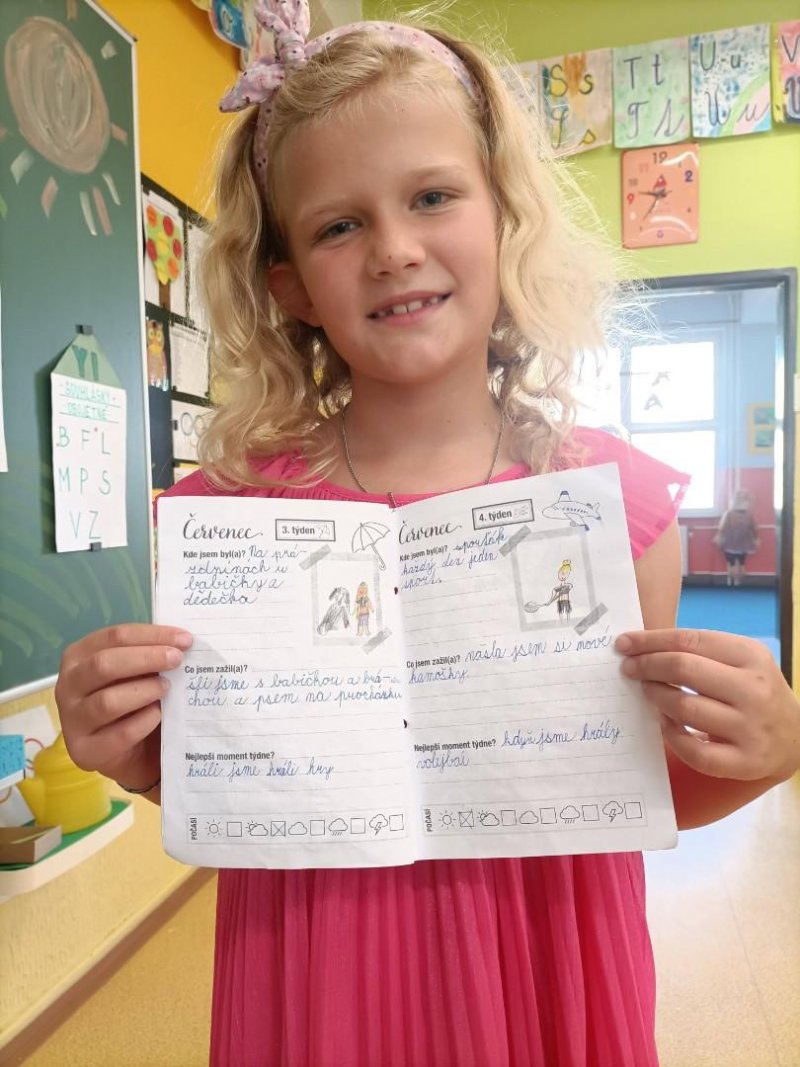 S s
T t
U u
10
12
2
9
3
SOUHLÁSKY
OBOJETNÉ
B F L
M P S
V Z
Červenec
3. týden
Kde jsem byl(a)? Na prá-
zdninách u
babičky a
dědečka
Co jsem zažil(a)?
šli jsme s babičkou a brá-
chou a psem na procházku
Nejlepší moment týdne?
hráli jsme hráli hry
POČASÍ
Červenec
4. týden
Kde jsem byl(a)? sporťák
každý den jeden
sport
Co jsem zažil(a)? našla jsem si nové
kamošky
Nejlepší moment týdne? když jsme hrály
volejbal
POČASÍ